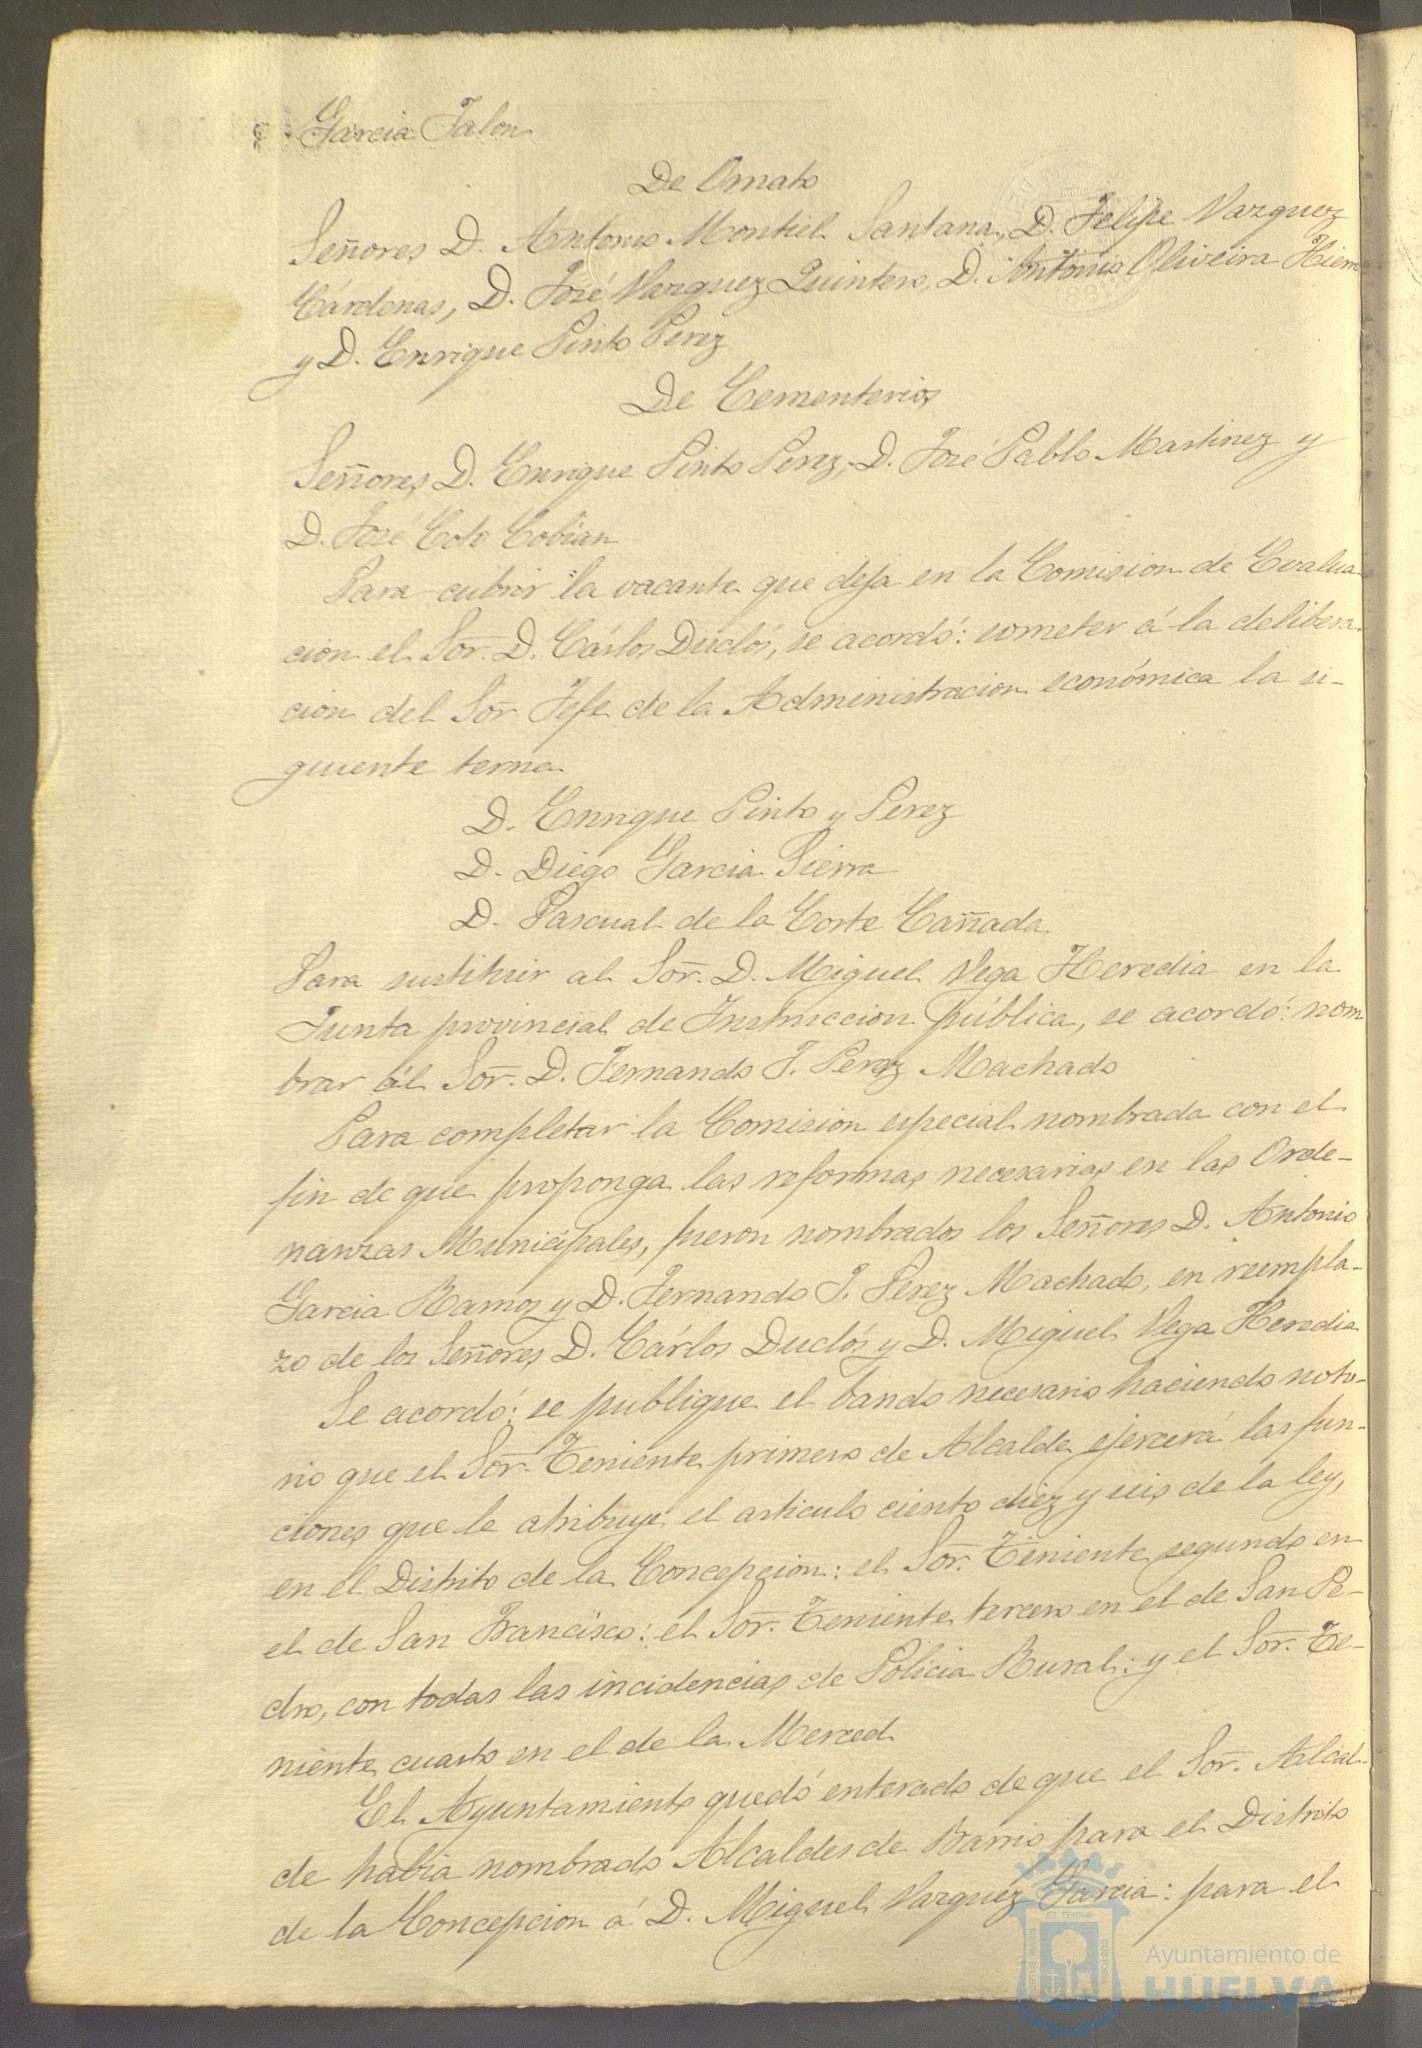 Garcia Talon
De Ornato
Señores D. Antonio Montiel Santana, D. Felipe Vazquez
Cárdenas, D. José Vazquez Quintero, D. Antonio Oliveira
y D. Enrique Pinto Perez
De Cementerios
Señores D. Enrique Pinto Perez, D. José Pablo Martinez y
D. José Coto Cobian
Para cubrir la vacante que deja en la Comision de Evalua
cion el Sor. D. Cárlos Duclós, se acordó: someter á la delibera-
cion del Sor Jefe de la Administracion económica la si-
guiente terna
D. Enrique Pinto y Perez
D. Diego Garcia Sierra
D. Pascual de la Corte Cañada.
Para sustituir al Sor. D. Miguel Vega Heredia en la
Junta provincial de Instruccion pública, se acordó: nom
brar ál Sor. D. Fernando J. Perez Machado
Para completar la Comision especial nombrada con el
fin de que proponga las reformas necesarias en las Orde-
nanzas Municipales, fueron nombrados los Señores D. Antonio
Garcia Ramos y D. Fernando J. Perez Machado, en reempla-
zo de los Señores D. Cárlos Duclós y D. Miguel Vega Heredia
Se acordó: se publique el bando necesario haciendo noto-
rio que el Sor. Teniente primero de Alcalde ejercerá las fun-
ciones que le atribuye el articulo ciento diez y seis de la ley,
en el Distrito de la Concepcion: el Sor. Teniente segundo en
el de San Francisco: el Sor. Teniente tercero en el de San Pe-
dro, con todas las incidencias de Policia Rural: y el Sor. Te-
niente cuarto en el de la Merced
El Ayuntamiento quedó enterado de que el Sor. Alcal-
de habia nombrado Alcaldes de Barrio para el Distrito
de la Concepcion á D. Miguel Vazquez Garcia: para el
Ayuntamiento de
HUELVA